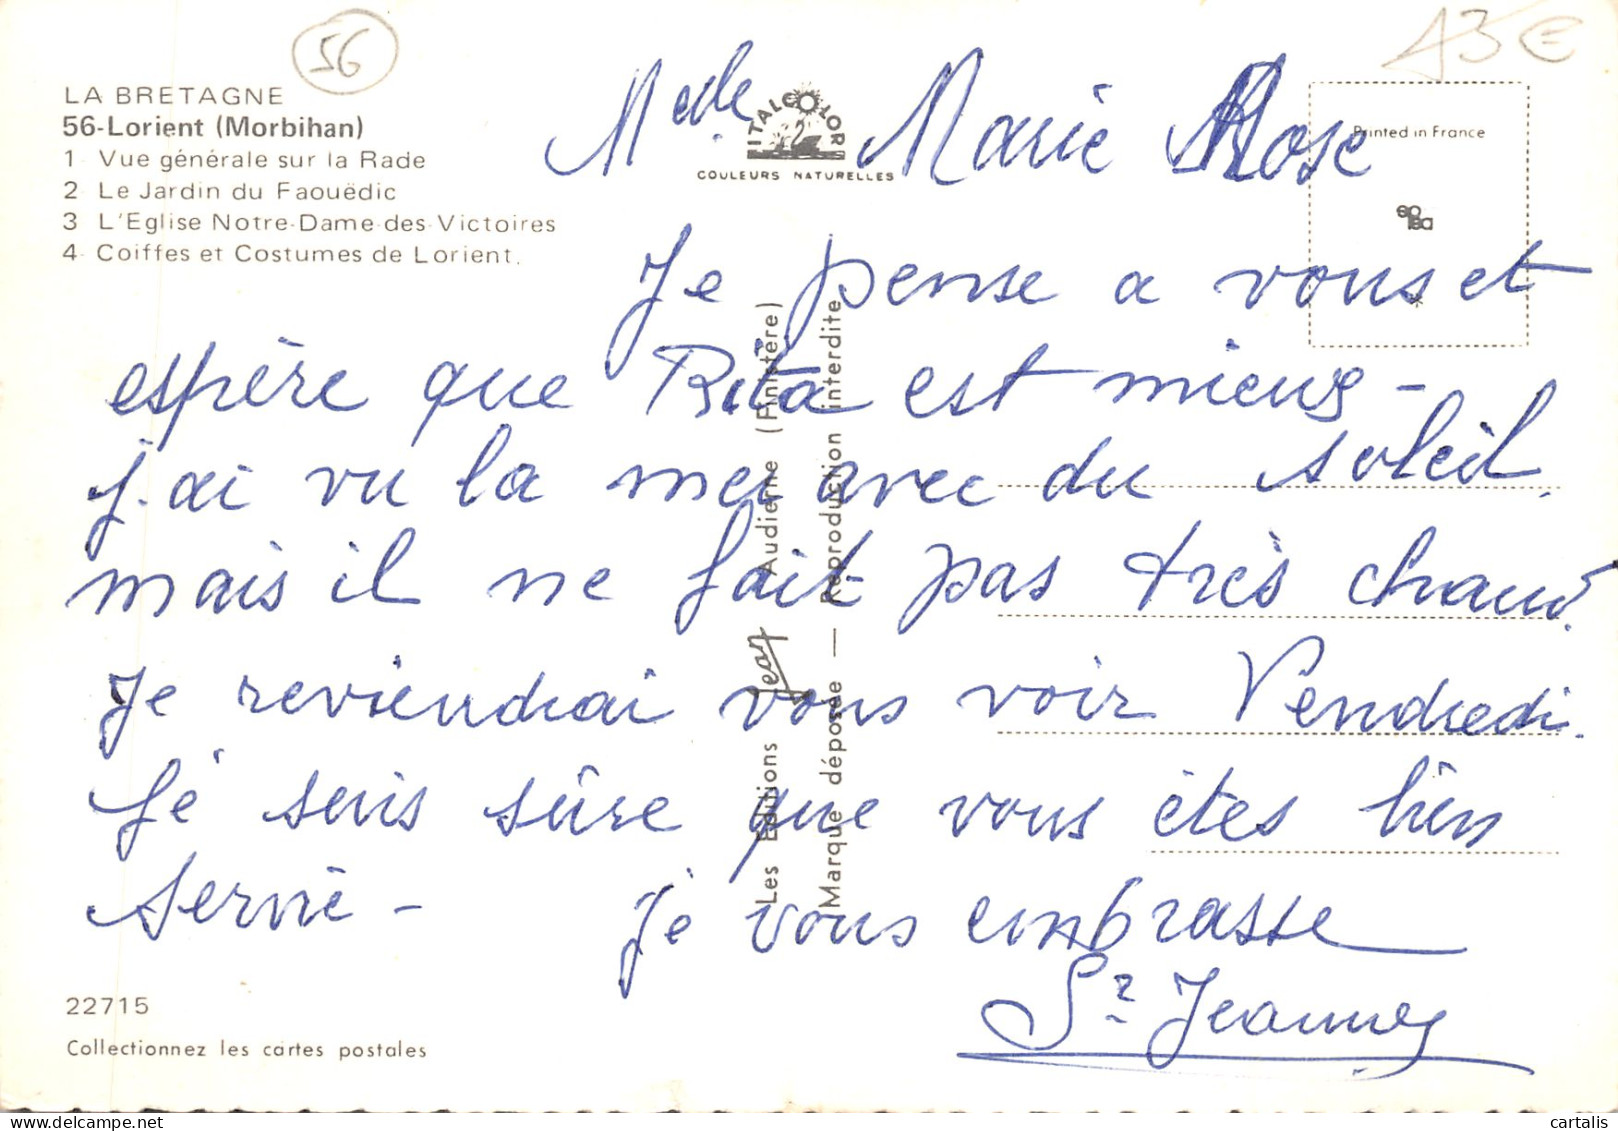 56
13€
LA BRETAGNE
56-Lorient (Morbihan)
1 - Vue générale sur la Rade
2 - Le Jardin du Faouëdic
3 - L'Eglise Notre-Dame-des-Victoires
4 - Coiffes et Costumes de Lorient.
ITALCOLOR
COULEURS NATURELLES
Printed in France
Melle Marie Rose
Je pense a vous et
espère que Rita est mieux -
j.ai vu la mer avec du soleil.
mais il ne fait pas très chaud.
Je reviendrai vous voir Vendredi.
Je suis sûre que vous êtes bien
servie - Je vous embrasse
Sr Jeanne
Les Editions Jean Audierne (Finistère)
Marque déposée — Reproduction interdite
22715
Collectionnez les cartes postales
cartalis